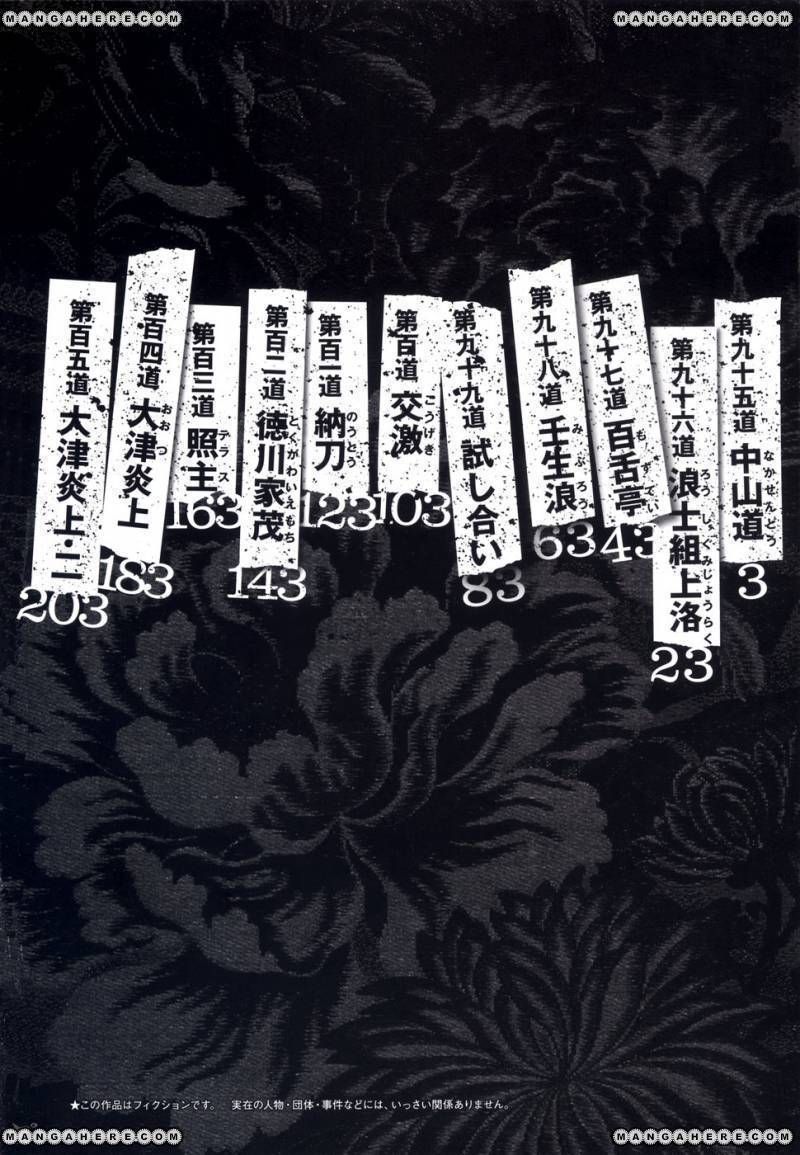 MANGAHERE.COM
MANGAHERE.COM
第九十五道 中山道
なかせんどう
3
第九十六道 浪士組上洛
ろうしぐみじょうらく
23
第九十七道 百舌亭
もずてい
43
第九十八道 壬生浪
みぶろう
63
第九十九道 試し合い
83
第百道 交激
こうげき
103
第百一道 納刀
のうとう
123
第百二道 徳川家茂
とくがわいえもち
143
第百三道 照主
テラス
163
第百四道 大津炎上
おおつ
183
第百五道 大津炎上・二
203
★この作品はフィクションです。 実在の人物・団体・事件などには、いっさい関係ありません。
MANGAHERE.COM
MANGAHERE.COM